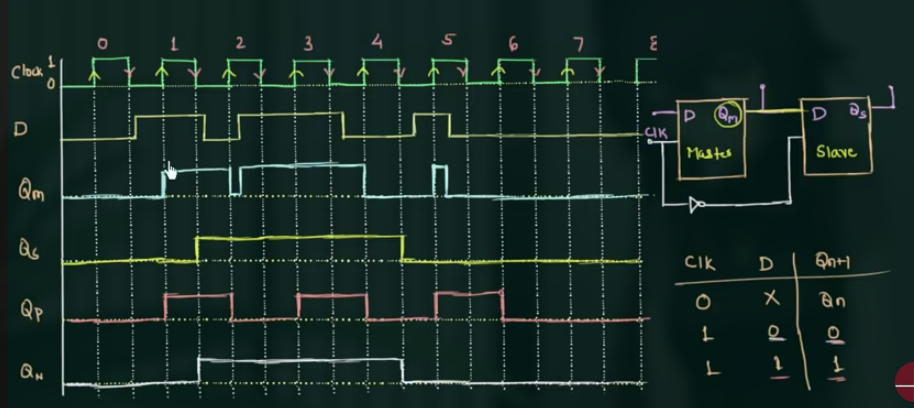 0 1 2 3 4 5 6 7 8
Clock 1
0
D
Qm
Qs
Qp
QN
D Qm
Master
CLK
D Qs
Slave
Clk D Qn+1
0 X Qn
1 0 0
1 1 1